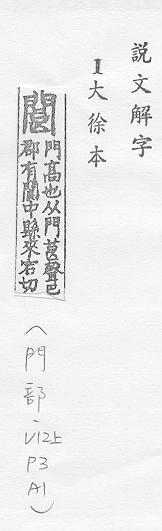 說文解字
1大徐本
閬
門高也从門良聲巴
郡有閬中縣來宕切
(門部.12上
P3
A1)